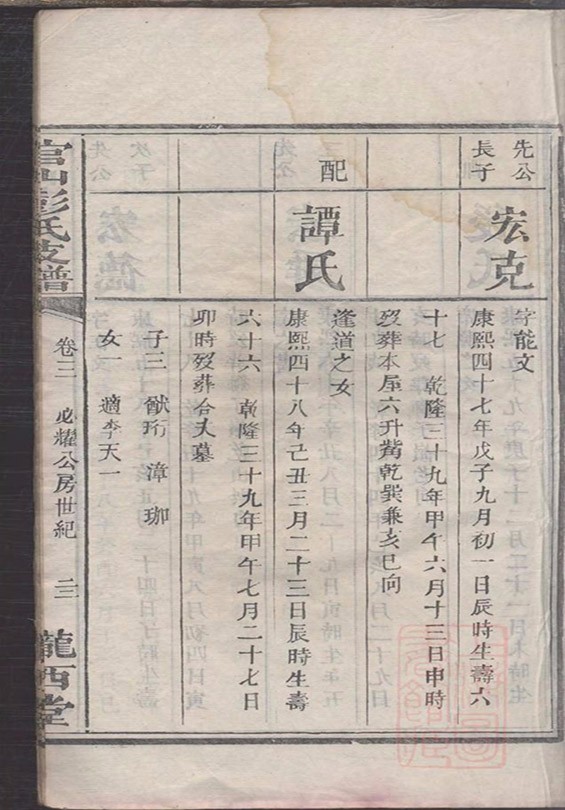 先公
長子
宏克
字能文
康熙四十七年戊子九月初一日辰時生壽六
十七 乾隆三十九年甲午六月十三日申時
歿葬本屋六升觜乾巽兼亥巳向
配
譚氏
逢道之女
康熙四十八年己丑三月二十三日辰時生壽
六十六 乾隆三十九年甲午七月二十七日
卯時歿葬合夫墓
子三 猷珩 漳 珈
女一 適李天一
官山彭氏支譜
卷三
必耀公房世紀
隴西堂